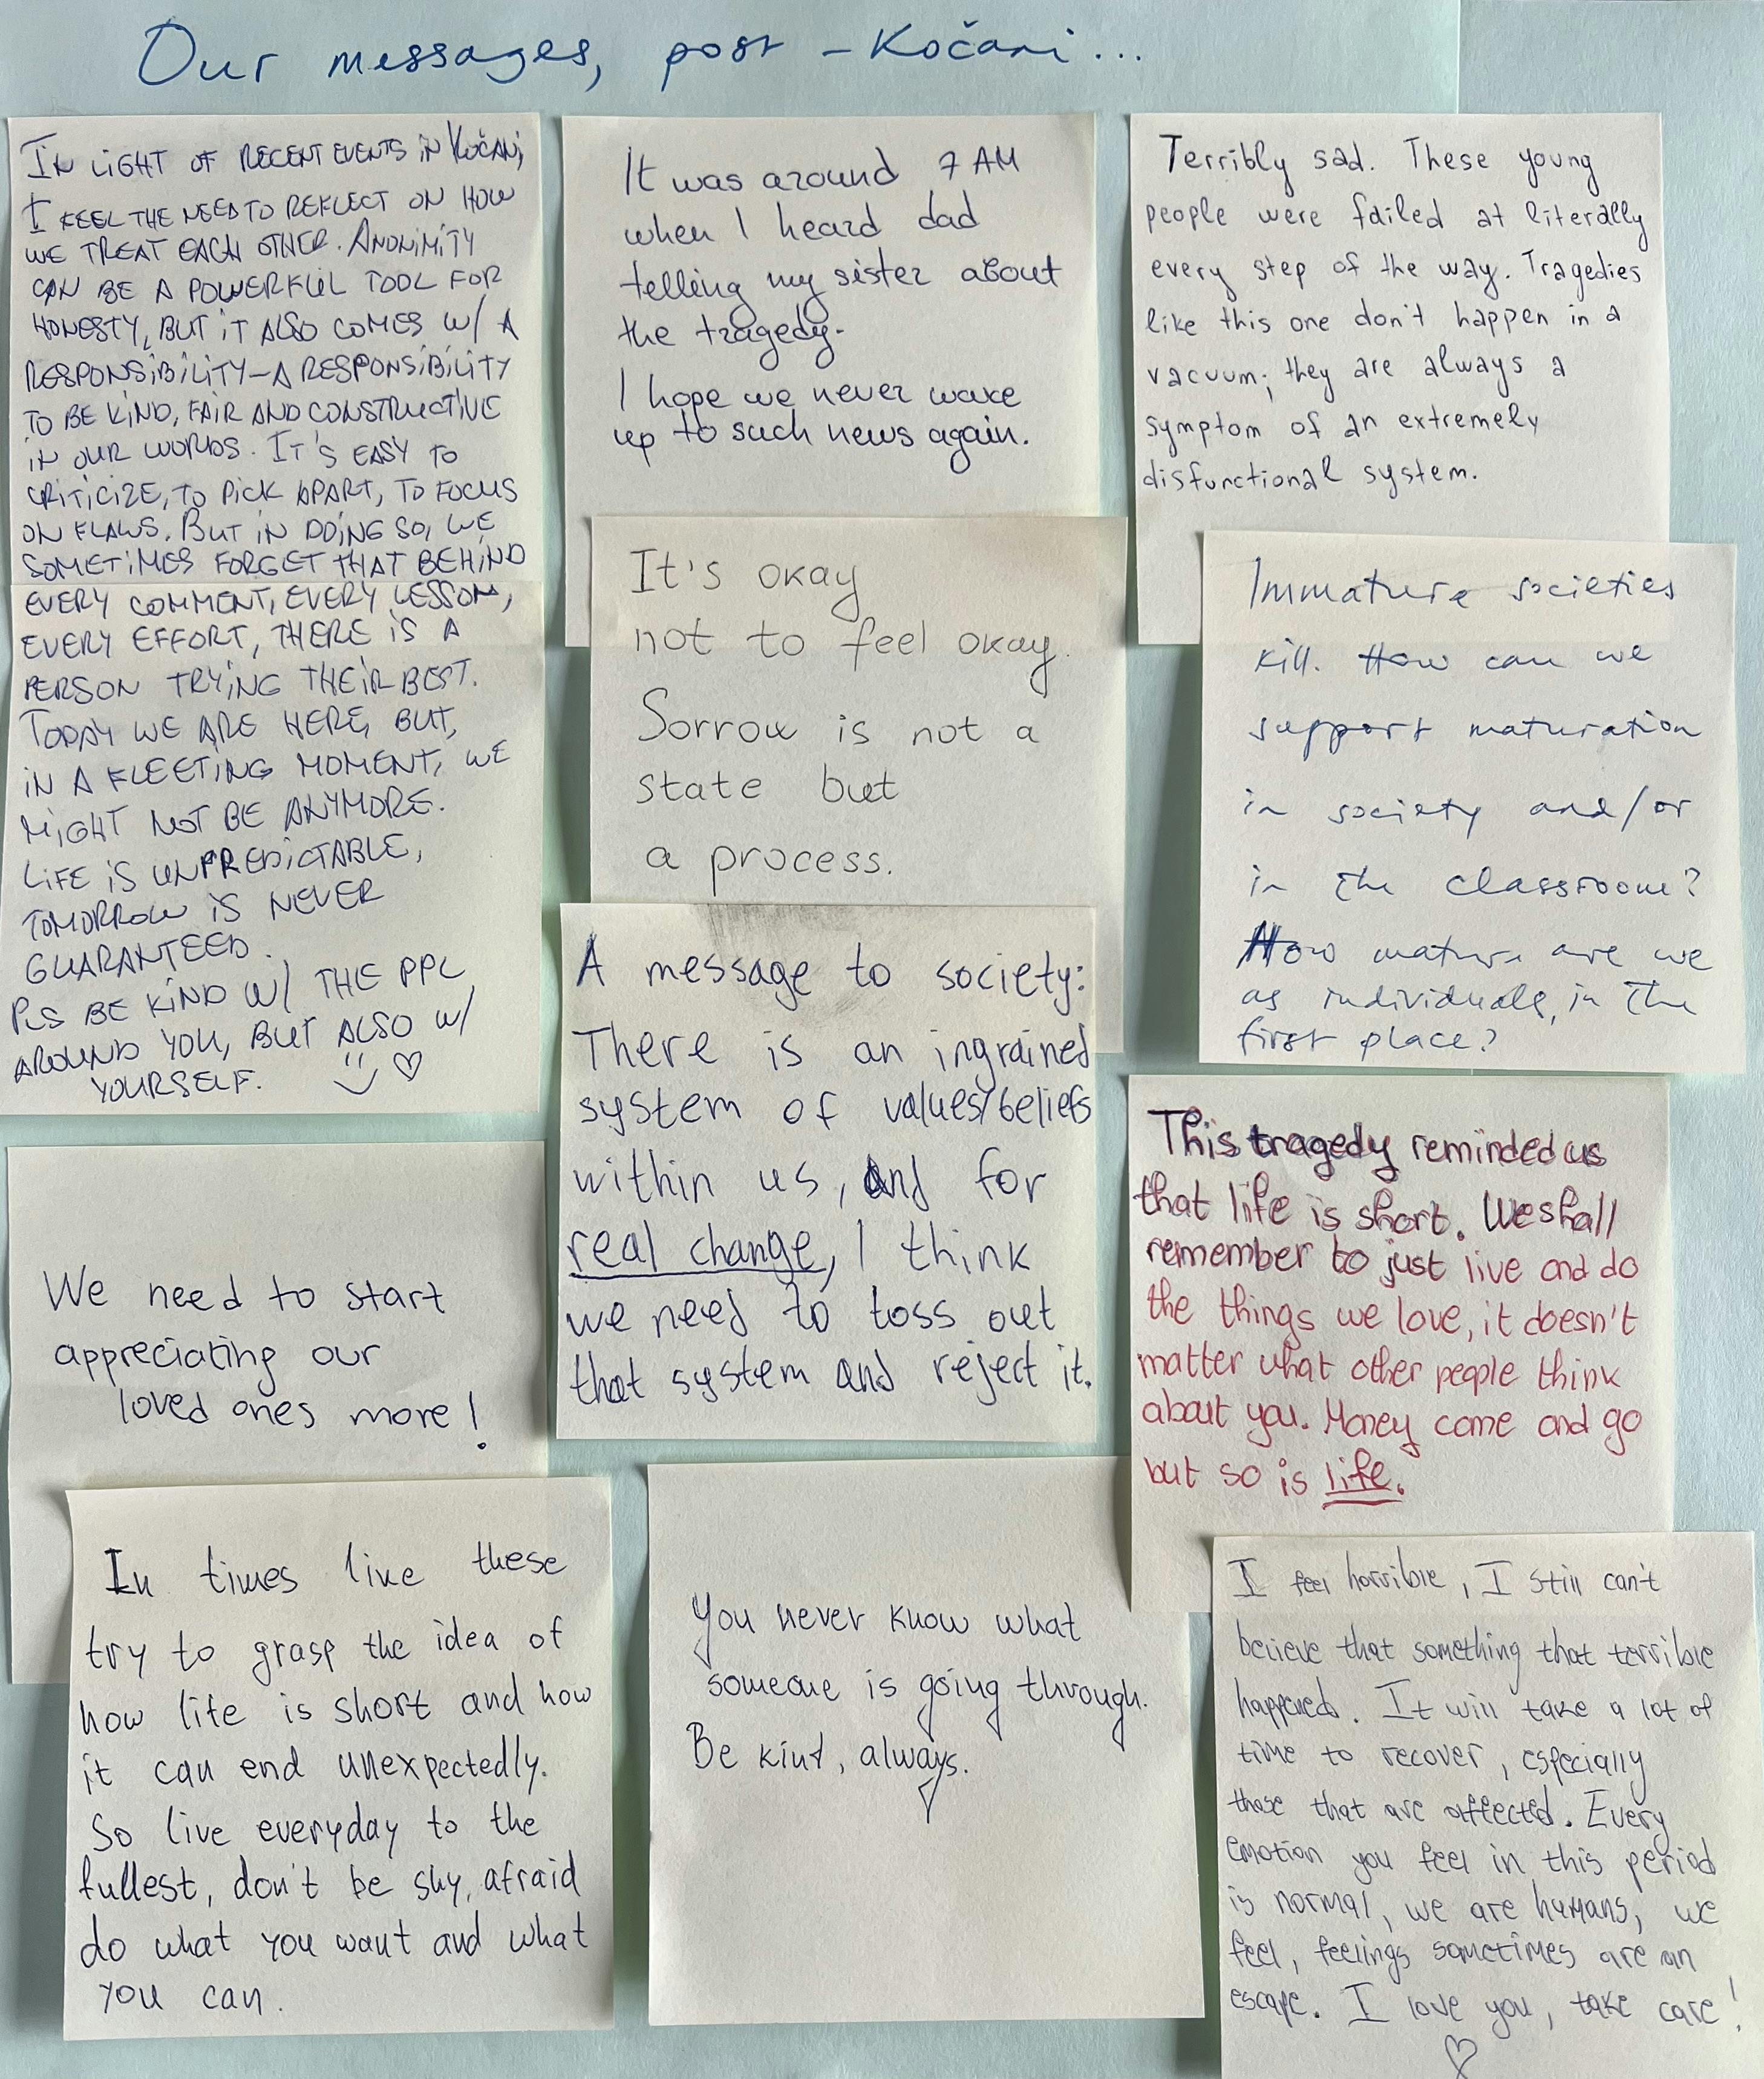 Our messages, post-Kočani...
IN LIGHT OF RECENT EVENTS IN KOČANI,
I FEEL THE NEED TO REFLECT ON HOW
WE TREAT EACH OTHER. ANONIMITY
CAN BE A POWERFUL TOOL FOR
HONESTY, BUT IT ALSO COMES W/ A
RESPONSIBILITY - A RESPONSIBILITY
TO BE KIND, FAIR AND CONSTRUCTIVE
IN OUR WORDS. IT'S EASY TO
CRITICIZE, TO PICK APART, TO FOCUS
ON FLAWS. BUT IN DOING SO, WE
SOMETIMES FORGET THAT BEHIND
EVERY COMMENT, EVERY LESSON,
EVERY EFFORT, THERE IS A
PERSON TRYING THEIR BEST.
TODAY WE ARE HERE, BUT,
IN A FLEETING MOMENT, WE
MIGHT NOT BE ANYMORE.
LIFE IS UNPREDICTABLE,
TOMORROW IS NEVER
GUARANTEED.
PLS BE KIND W/ THE PPL
AROUND YOU, BUT ALSO W/
YOURSELF.
It was around 7 AM
when I heard dad
telling my sister about
the tragedy.
I hope we never wake
up to such news again.
Terribly sad. These young
people were failed at literally
every step of the way. Tragedies
like this one don't happen in a
vacuum; they are always a
symptom of an extremely
disfunctional system.
It's okay
not to feel okay.
Sorrow is not a
state but
a process.
Immature societies
kill. How can we
support maturation
in society and/or
in the classroom?
How mature are we
as individuals, in the
first place?
A message to society:
There is an ingrained
system of values/beliefs
within us, and for
real change, I think
we need to toss out
that system and reject it.
This tragedy reminded us
that life is short. We shall
remember to just live and do
the things we love, it doesn't
matter what other people think
about you. Money come and go
but so is life.
We need to start
appreciating our
loved ones more!
In times like these
try to grasp the idea of
how life is short and how
it can end unexpectedly.
So live everyday to the
fullest, don't be shy, afraid
do what you want and what
you can.
You never know what
someone is going through.
Be kind, always.
I feel horrible, I still can't
believe that something that terrible
happened. It will take a lot of
time to recover, especially
those that are affected. Every
emotion you feel in this period
is normal, we are humans, we
feel, feelings sometimes are an
escape. I love you, take care!